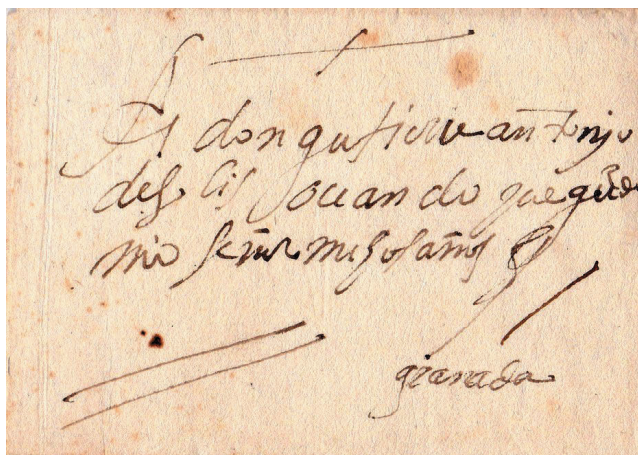 A don gutierre antonjo
de solis ouando que gude
mio señor muchos años
granada